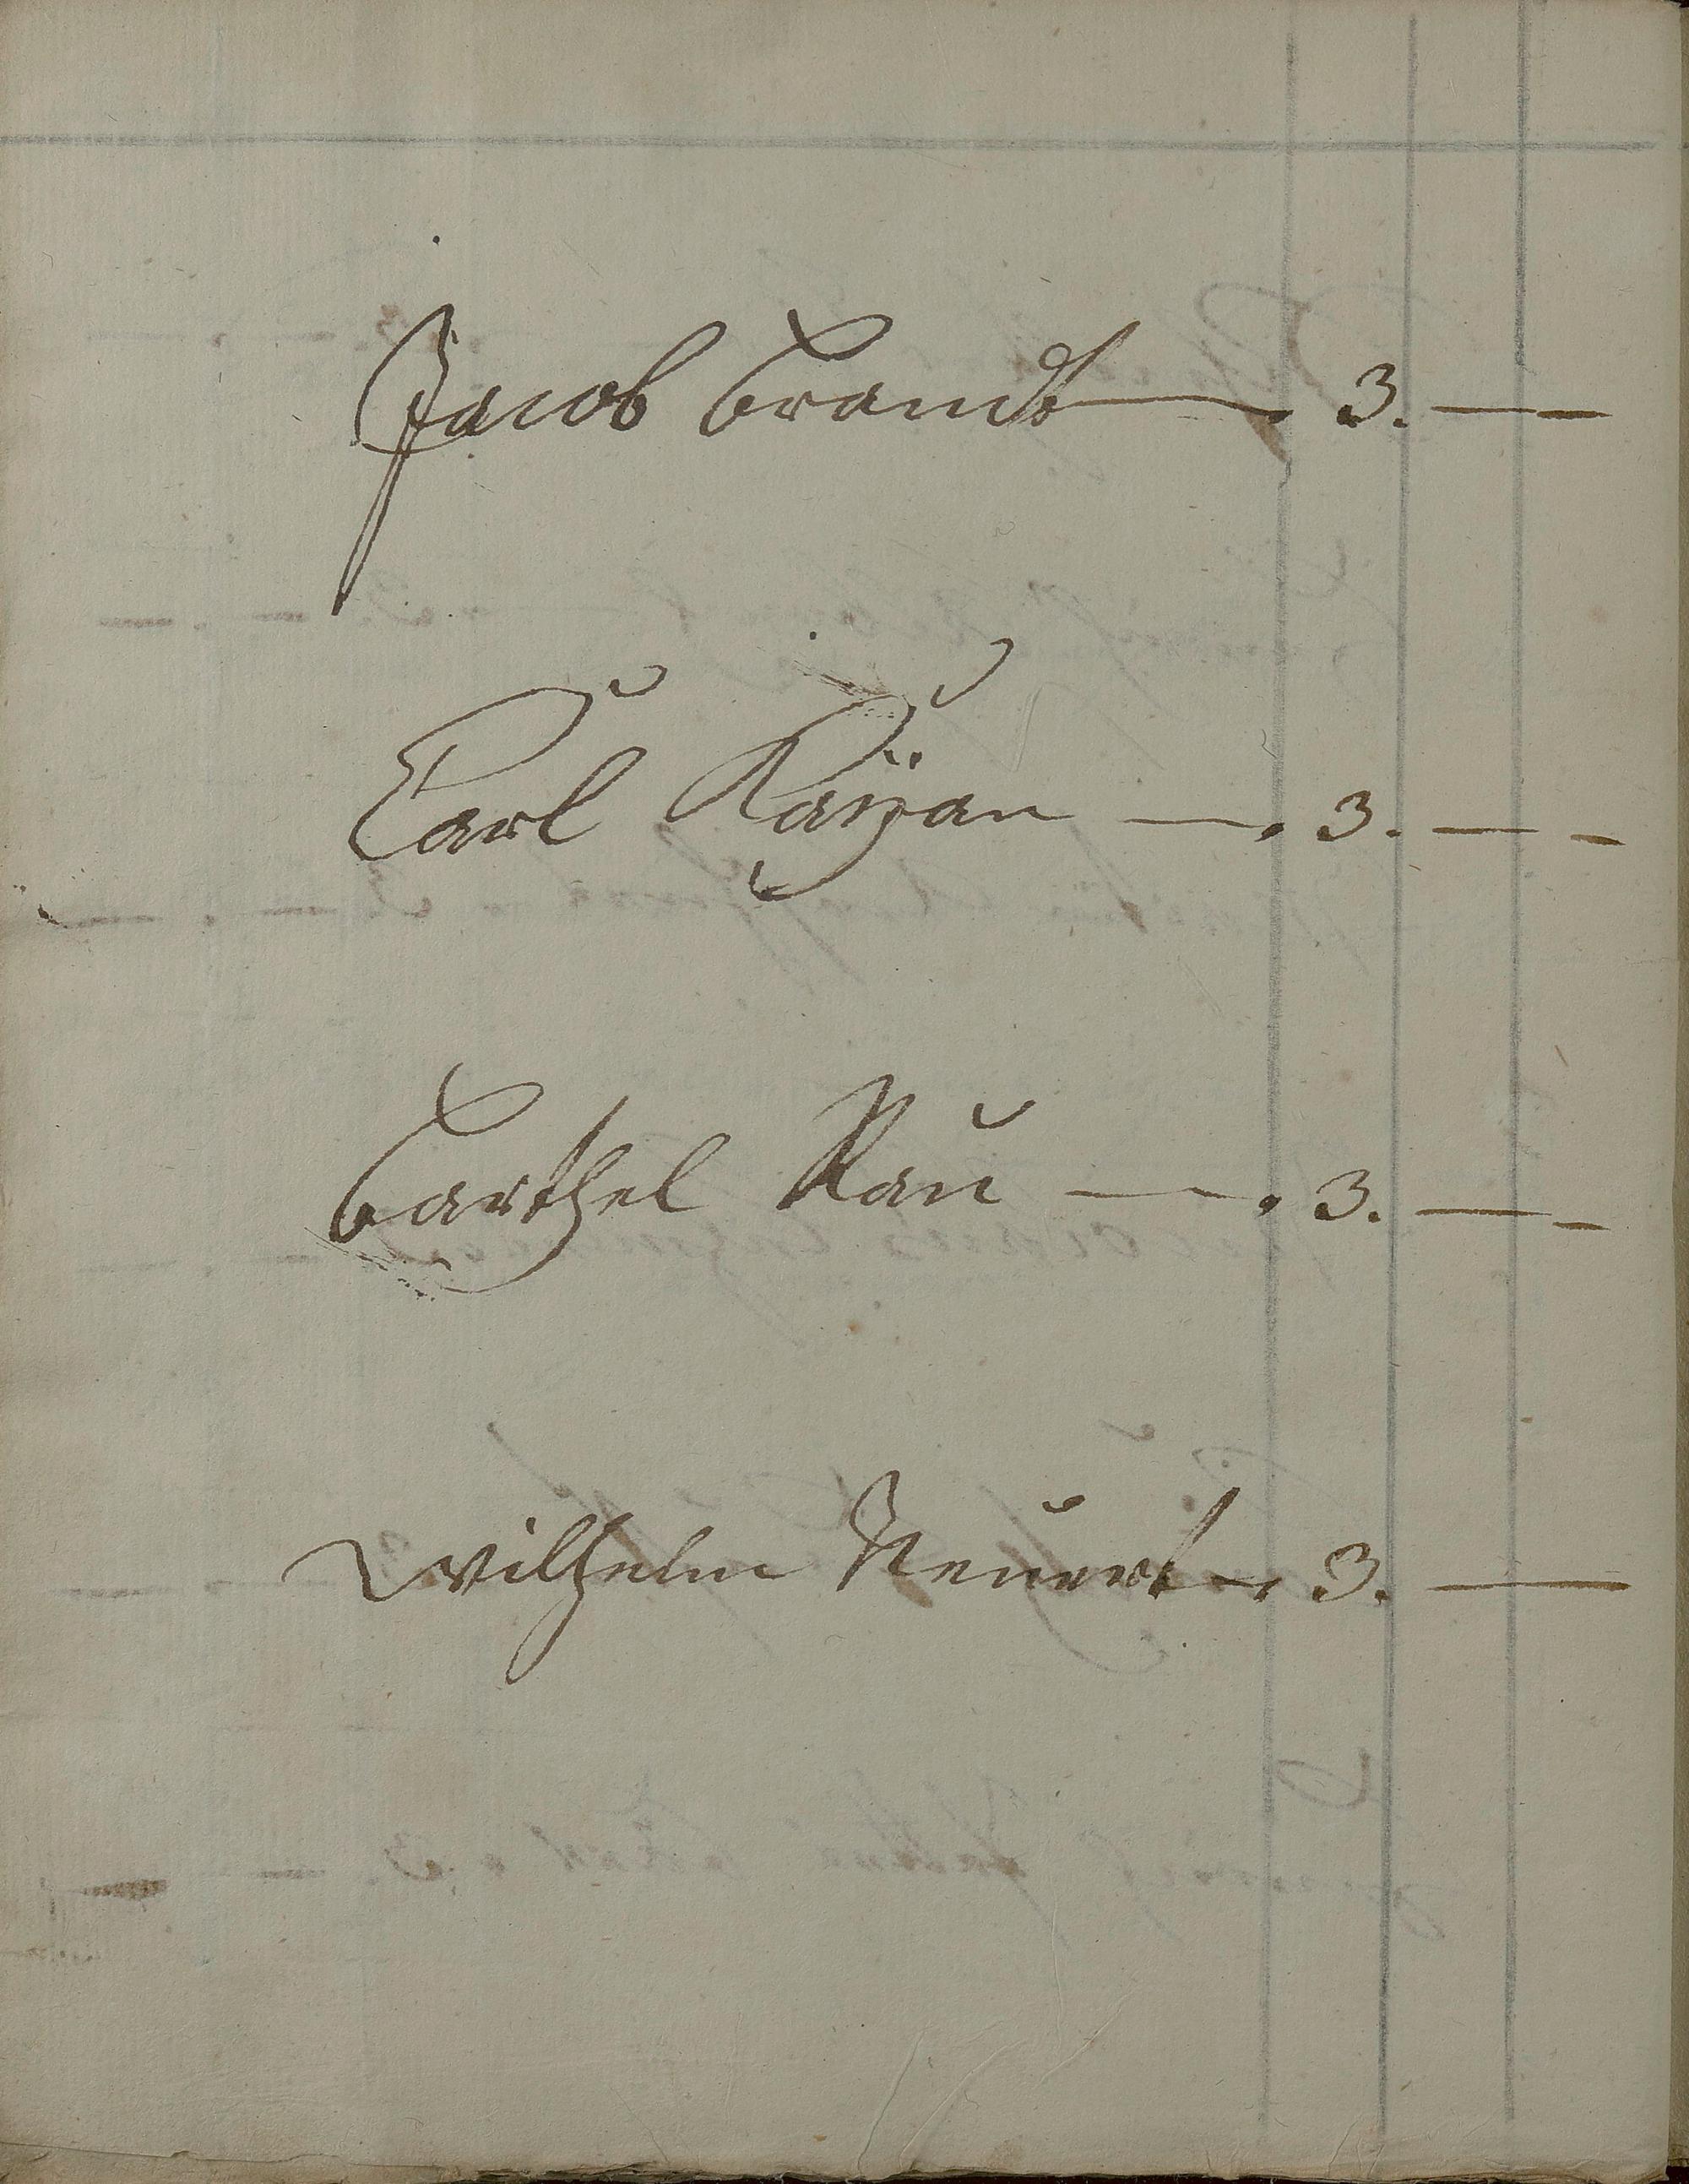 Jacob Brandt — 3. — —
Carl Raÿan — 3. — —
Barthel Rau — 3. — —
Wilhelm Neuert — 3. —